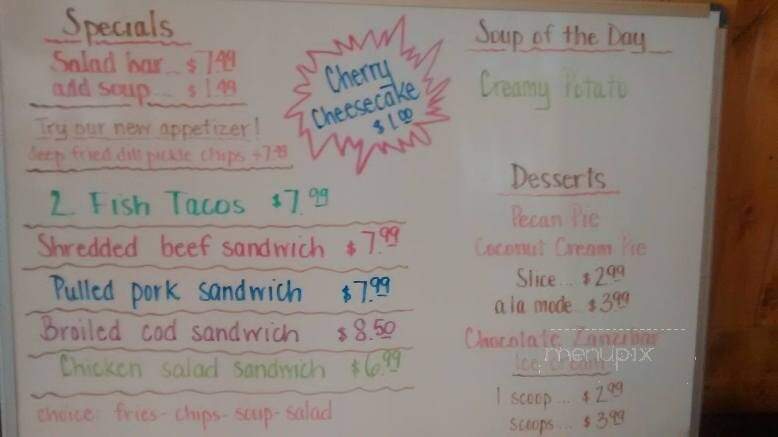 Specials
Salad bar... $7.99
add soup... $1.99
Try our new appetizer!
deep fried dill pickle chips
2 Fish Tacos $7.99
Shredded beef sandwich $7.99
Pulled pork sandwich $7.99
Broiled cod sandwich $8.50
Chicken salad sandwich $6.99
choice: fries - chips - soup - salad
Cherry
Cheesecake
$1.00
Soup of the Day
Creamy Potato
Desserts
Pecan Pie
Coconut Cream Pie
Slice... $2.99
a la mode.. $3.99
Chocolate Zanzibar
Ice Cream
menupix
1 scoop... $2.99
scoops... $3.99